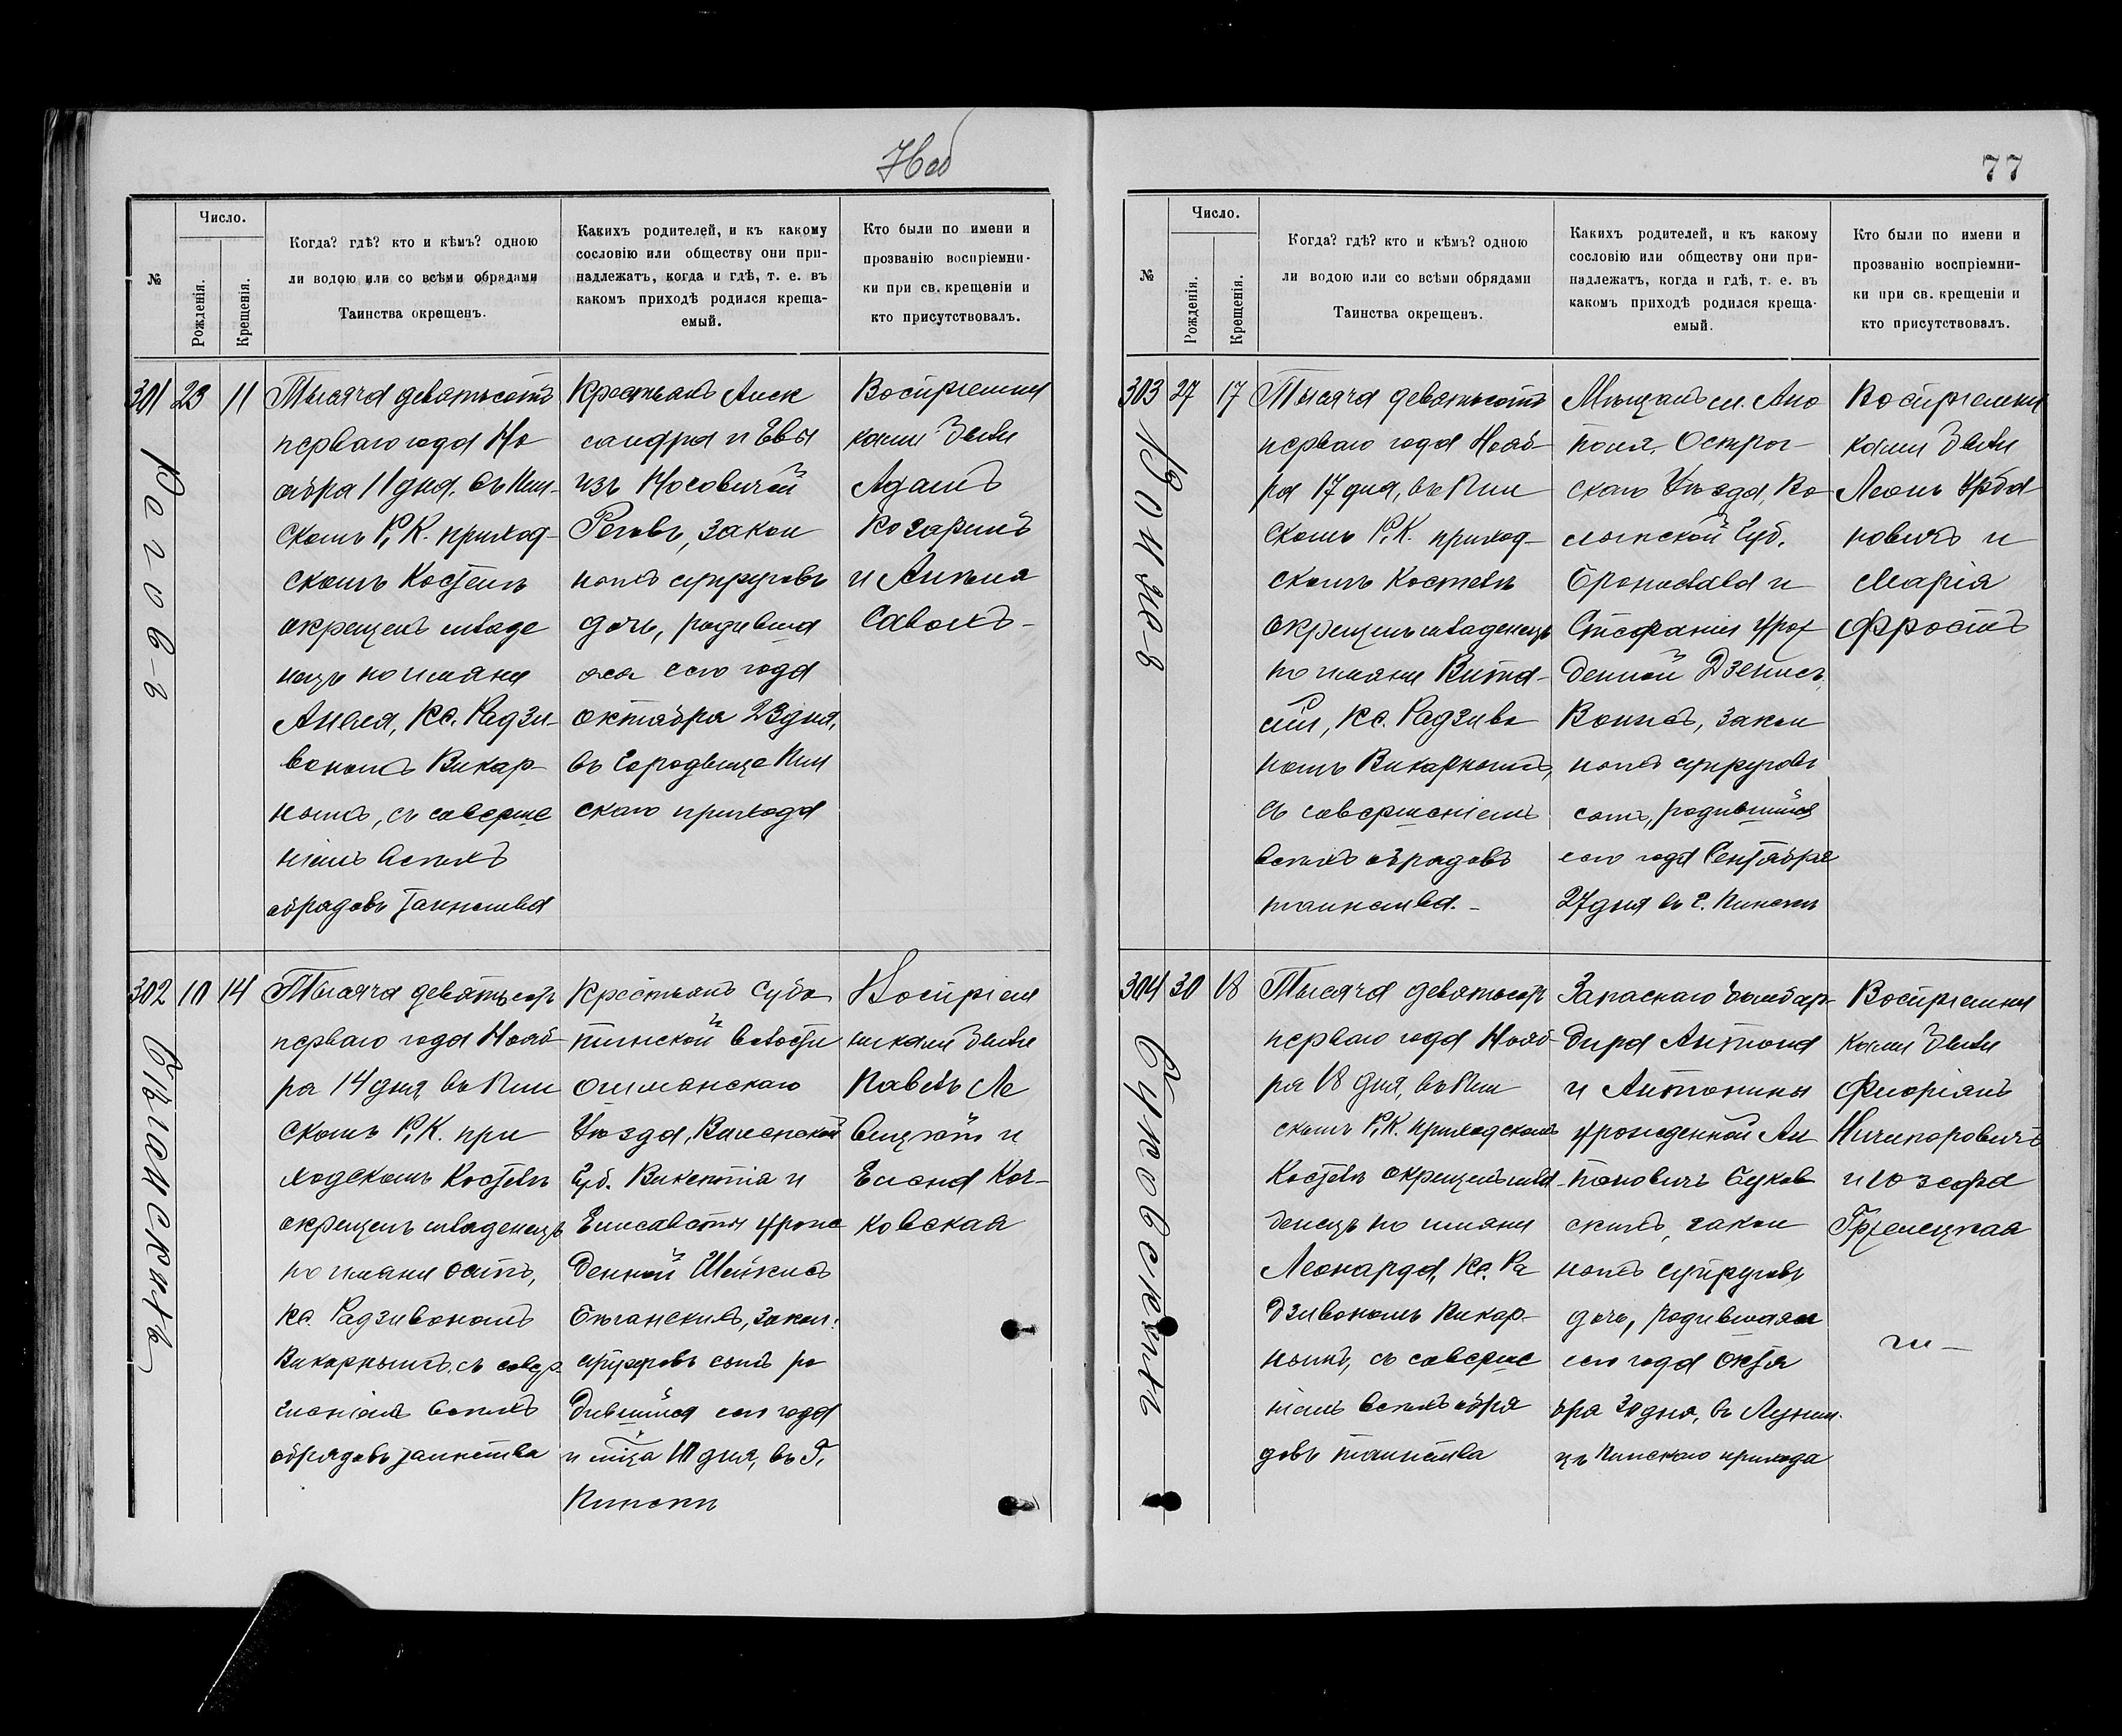 76об
№
Число.
Рожденія.
Крещенія.
Когда? гдѣ? кто и кѣмъ? одною
ли водою или со всѣми обрядами
Таинства окрещенъ.
Какихъ родителей, и къ какому
сословію или обществу они при-
надлежатъ, когда и гдѣ, т. е. въ
какомъ приходѣ родился креща-
емый.
Кто были по имени и
прозванію воспріемни-
ки при св. крещеніи и
кто присутствовалъ.
301 23 11
Тысяча девятьсотъ
перваго года Но
ября 11 дня, въ Пин-
скомъ Р. К. приход-
скомъ Костелѣ
окрещенъ младе
нецъ по имяни
Анеля, Кс. Радзи-
вономъ Викар-
нымъ, съ соверше
ніемъ всѣхъ
обрядовъ Таинства
Крестьянъ Алек
сандра и Евы
изъ Носовичей
Рогов, закон
ныхъ супруговъ
дочь, родивша
яся сего года
октября 23 дня,
въ Городище Пин
скаго прихода
Воспріемни
ками были
Адамъ
Козаринъ
и Анеля
Савокъ-
302 10 14
Тысяча девятьсотъ
перваго года Нояб-
ря 14 дня, въ Пин
скомъ Р. К. при
ходскомъ Костелѣ
окрещенъ младенецъ
по имяни
Кс. Радзивономъ
Викарнымъ, съ совер
шеніемъ всѣхъ
обрядовъ таинства
Крестьянъ Субо
тинской волости
ошмянскаго
Уѣзда, Виленской
Губ. Викентія и
Елисаветы урож
денной
закон.
супруговъ сынъ ро
дившійся сего года
и мѣца 10 дня, въ Г.
Пинскѣ
Воспріем
никами были
Павелъ Ле
и
Елена Кос-
ковская
77
№
Число.
Рожденія.
Крещенія.
Когда? гдѣ? кто и кѣмъ? одною
ли водою или со всѣми обрядами
Таинства окрещенъ.
Какихъ родителей, и къ какому
сословію или обществу они при-
надлежатъ, когда и гдѣ, т. е. въ
какомъ приходѣ родился креща-
емый.
Кто были по имени и
прозванію воспріемни-
ки при св. крещеніи и
кто присутствовалъ.
303 27 17
Тысяча девятьсотъ
перваго года Нояб-
ря 17 дня, въ Пин
скомъ Р. К. приход-
скомъ Костелѣ
окрещенъ младенецъ
по имяни Вита-
лій, Кс. Радзиво
номъ Викарнымъ,
съ совершеніемъ
всѣхъ обрядовъ
таинства.-
Мѣщанъ м. Ано
поля, Острог-
скаго Уѣзда, Во
лынской Губ.
Бронислава и
Стефаніи урож
денной
закон
ныхъ супруговъ
сынъ, родившійся
сего года Сентября
27 дня въ г. Пинскѣ
Воспріемни
ками были
Леонъ Урба
новичъ и
Марія
Фростъ
304 30 18
Тысяча девятьсотъ
перваго года Нояб-
ря 18 дня, въ Пин
скомъ Р. К. приходскомъ
Костелѣ окрещенъ мла-
денецъ по имяни
Леонарда, Кс. Ра
дзивономъ Викар-
нымъ, съ соверше
ніемъ всѣхъ обря
довъ таинства
Запаснаго бомбар-
дира Антона
и Антонины
урожденной Ан
тоновичъ Буков
скихъ, закон
ныхъ супруговъ
дочь, родившаяся
сего года Октя
бря 30 дня, въ Лунин-
цѣ Пинскаго прихода
Воспріемни
ками были
Флоріянъ
Ничипоровичъ
и Юзефа
Буковскихъ